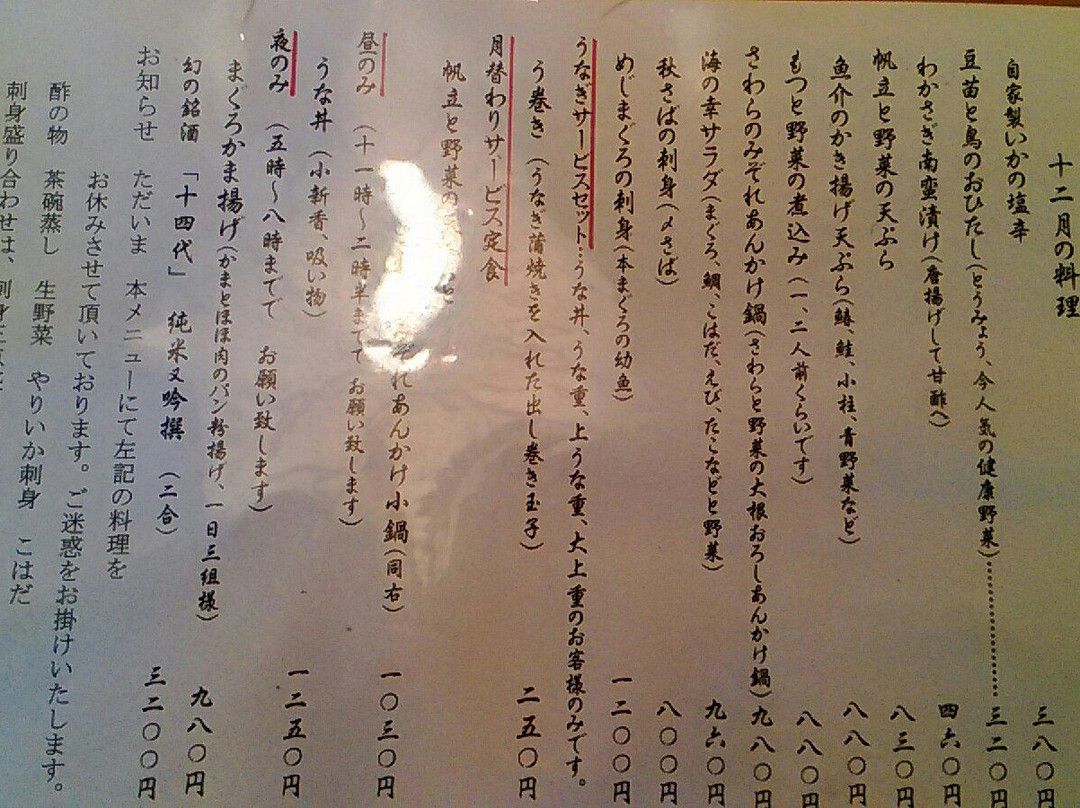 十二月の料理
自家製いかの塩辛 三八〇円
豆苗と鳥のおひたし(とうみょう、今人気の健康野菜)………… 三二〇円
わかさぎ南蛮漬け(唐揚げして甘酢へ) 四六〇円
帆立と野菜の天ぷら 八三〇円
魚介のかき揚げ天ぷら(鱚、鮭、小柱、青野菜など) 八八〇円
もつと野菜の煮込み(一、二人前くらいです) 八八〇円
さわらのみぞれあんかけ鍋(さわらと野菜の大根おろしあんかけ鍋) 九八〇円
海の幸サラダ(まぐろ、鯛、こはだ、えび、たこなどと野菜) 九六〇円
秋さばの刺身(〆さば) 八〇〇円
めじまぐろの刺身(本まぐろの幼魚) 一二〇〇円
うなぎサービスセット…うな丼、うな重、上うな重、大上重のお客様のみです。
う巻き(うなぎ蒲焼きを入れた出し巻き玉子) 二五〇円
月替わりサービス定食
帆立と野菜の ぞれあんかけ小鍋(同右) 一〇三〇円
昼のみ (十一時〜二時半までで お願い致します)
うな丼(小新香、吸い物) 一二五〇円
夜のみ (五時〜八時までで お願い致します)
まぐろかま揚げ(かまとほほ肉のパン粉揚げ、一日三組様) 九八〇円
幻の銘酒 「十四代」 純米又吟撰 (二合) 三二〇〇円
お知らせ ただいま 本メニューにて左記の料理を
お休みさせて頂いております。ご迷惑をお掛けいたします。
酢の物 茶碗蒸し 生野菜 やりいか刺身 こはだ
刺身盛り合わせは、